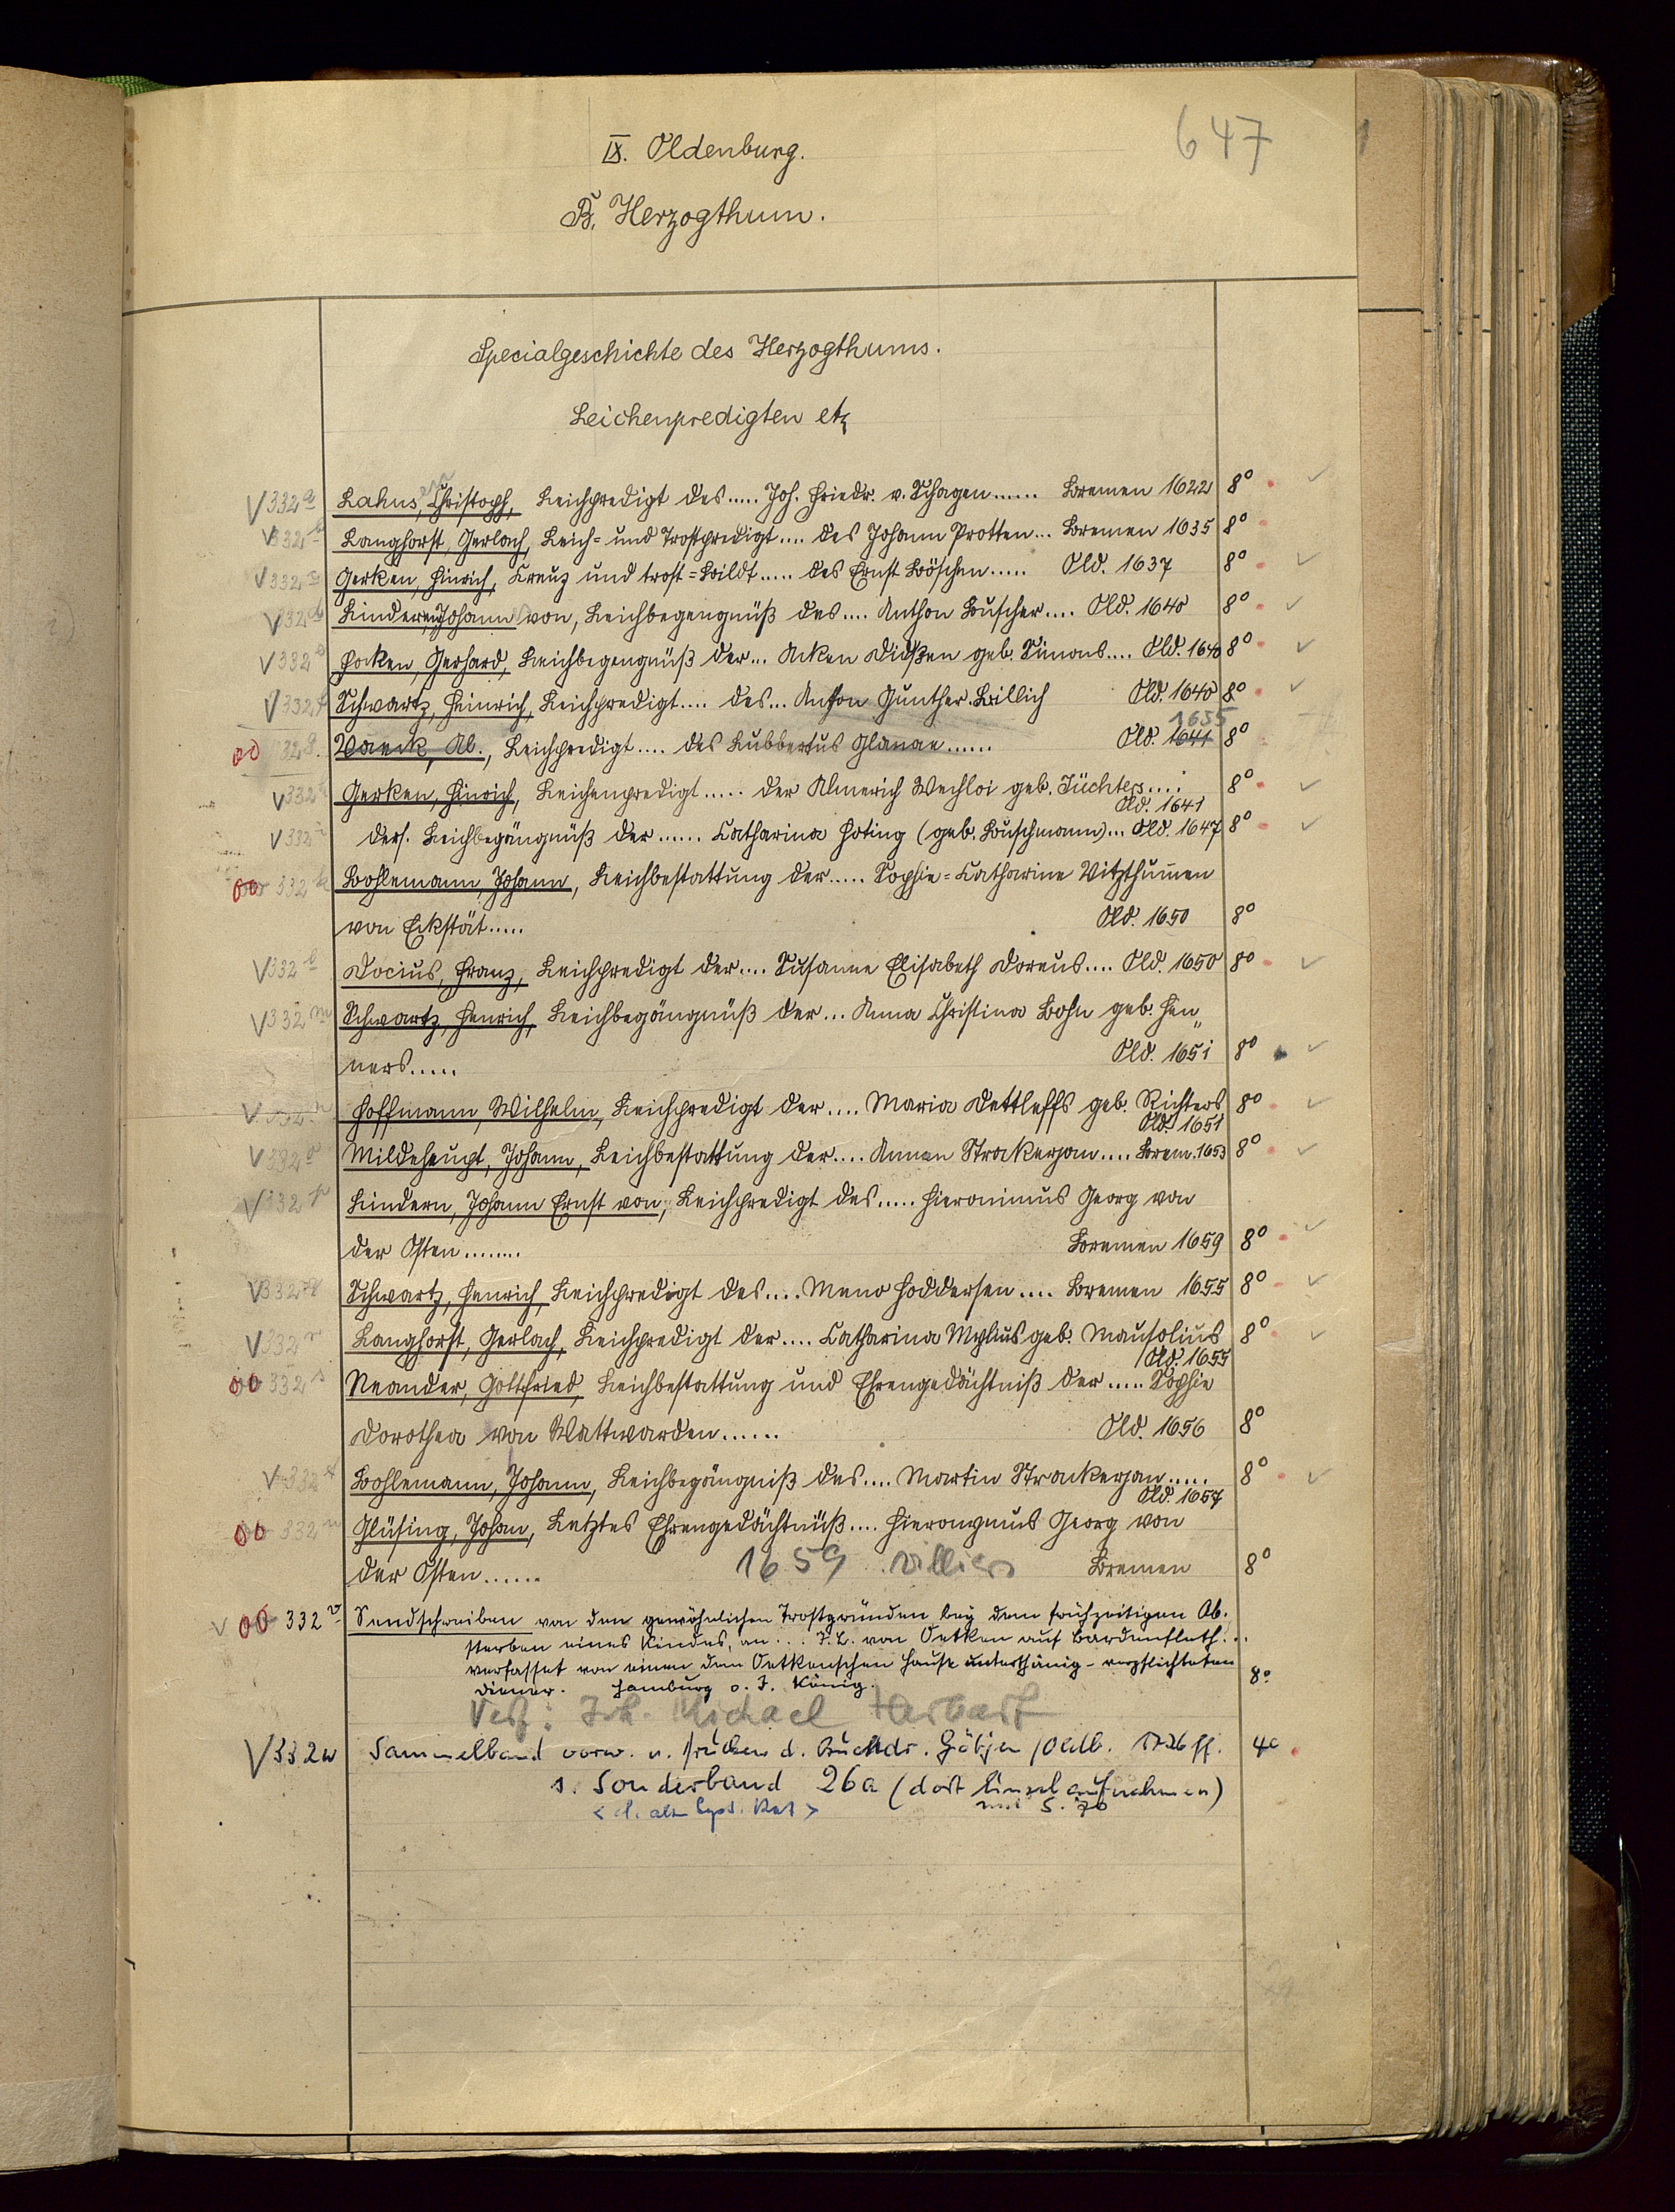 647
IX. Oldenburg.
B. Herzogthum.
Specialgeschichte des Herzogthums.
Leichenpredigten etz
V 332 a Lahus, Christoph, Leichpredigt des..... Joh. Friedr. v. Schagen...... Bremen 1622 8°
V 332 b Langhorst, Gerlach, Leich= und Trostpredigt.... des Johann Protten... Bremen 1635 8°
V 332 c Gerken, Hinrich, Kreuz und trost=Bildt..... des Ernst Böschen..... Old. 1637 8°
V 332 d Lindern, Johann von, Leichbegengnüß des.... Anthon Buscher.... Old. 1640 8°
V 332 e Focken, Gerhard, Leichbegengnüß der... Anken Didßen geb. Simons.... Old. 1640 8°
V 332 f Schwartz, Heinrich, Leichpredigt.... des... Anton Gunther Billich Old. 1640 8°
1635
00 332 g. Vaeck, Al., Leichpredigt.... des Lubbertus Glanae...... Old. 1641 8°
V 332 h Gerken, Hinrich, Leichenpredigt..... der Almerich Wechloi geb. Züchters.... 8°
Old. 1641
V 332 i ders. Leichbegängnüß der...... Catharina Hoting (geb. Buschmann)... Old. 1647 8°
00 332 k Bohlemann, Johann, Leichbestattung der..... Sophie=Catharine Vitzthumen
von Eckstät..... Old. 1650 8°
V 332 l Docius, Franz, Leichpredigt der.... Susanne Elisabeth Doreus.... Old. 1650 8°
V 332 m Schwartz, Henrich, Leichbegängnüß der... Anna Christina Bohn geb. Hen„
ners..... Old. 1651 8°
V 332 n Hoffmann, Wilhelm, Leichpredigt der.... Maria Dettleffs geb. Richters 8°
Old. 1651
V 332 o Mildehaupt, Johann, Leichbestattung der.... Annen Strackerjan.... Brem. 1653 8°
V 332 p Lindern, Johann Ernst von, Leichpredigt des..... Hieronimus Georg von
der Osten........ Bremen 1659 8°
V 332 q Schwartz, Henrich, Leichpredigt des.... Meno Hoddersen.... Bremen 1655 8°
V 332 r Langhorst, Gerlach, Leichpredigt der.... Catharina Mylius geb. Mausolius 8°
Old. 1655
00 332 s Neander, Gottfried, Leichbestattung und Ehrengedächtniß der..... Sophie
Dorothea von Wattwarden...... Old. 1656 8°
V 332 t Bohlemann, Johann, Leichbegängniß des.... Martin Strackerjan..... 8°
Old. 1657
00 332 u Glüsing, Johan, Letztes Ehrengedächtnüß.... Hieronymus Georg von
der Osten...... 1659 Bremen 8°
V 00 332 v Sendschreiben von den gewöhnlichen Trostgründen bey dem frühzeitigen Ab-
sterben eines Kindes, an... J. L. von Oetken auf Bardenfleth...
verfasset von einem dem Oetkenschen Hause unterthänig-verpflichteten
Diener. Hamburg o. J. König. 8°
Verf: Joh. Michael Herbart
V 332 w Sammelband vorw. v. Drucken d. Buchdr. Götjen / Oldb. 1726 ff. 4°
s. Sonderband 26a (dort einzel aufnahmen)
S. 70